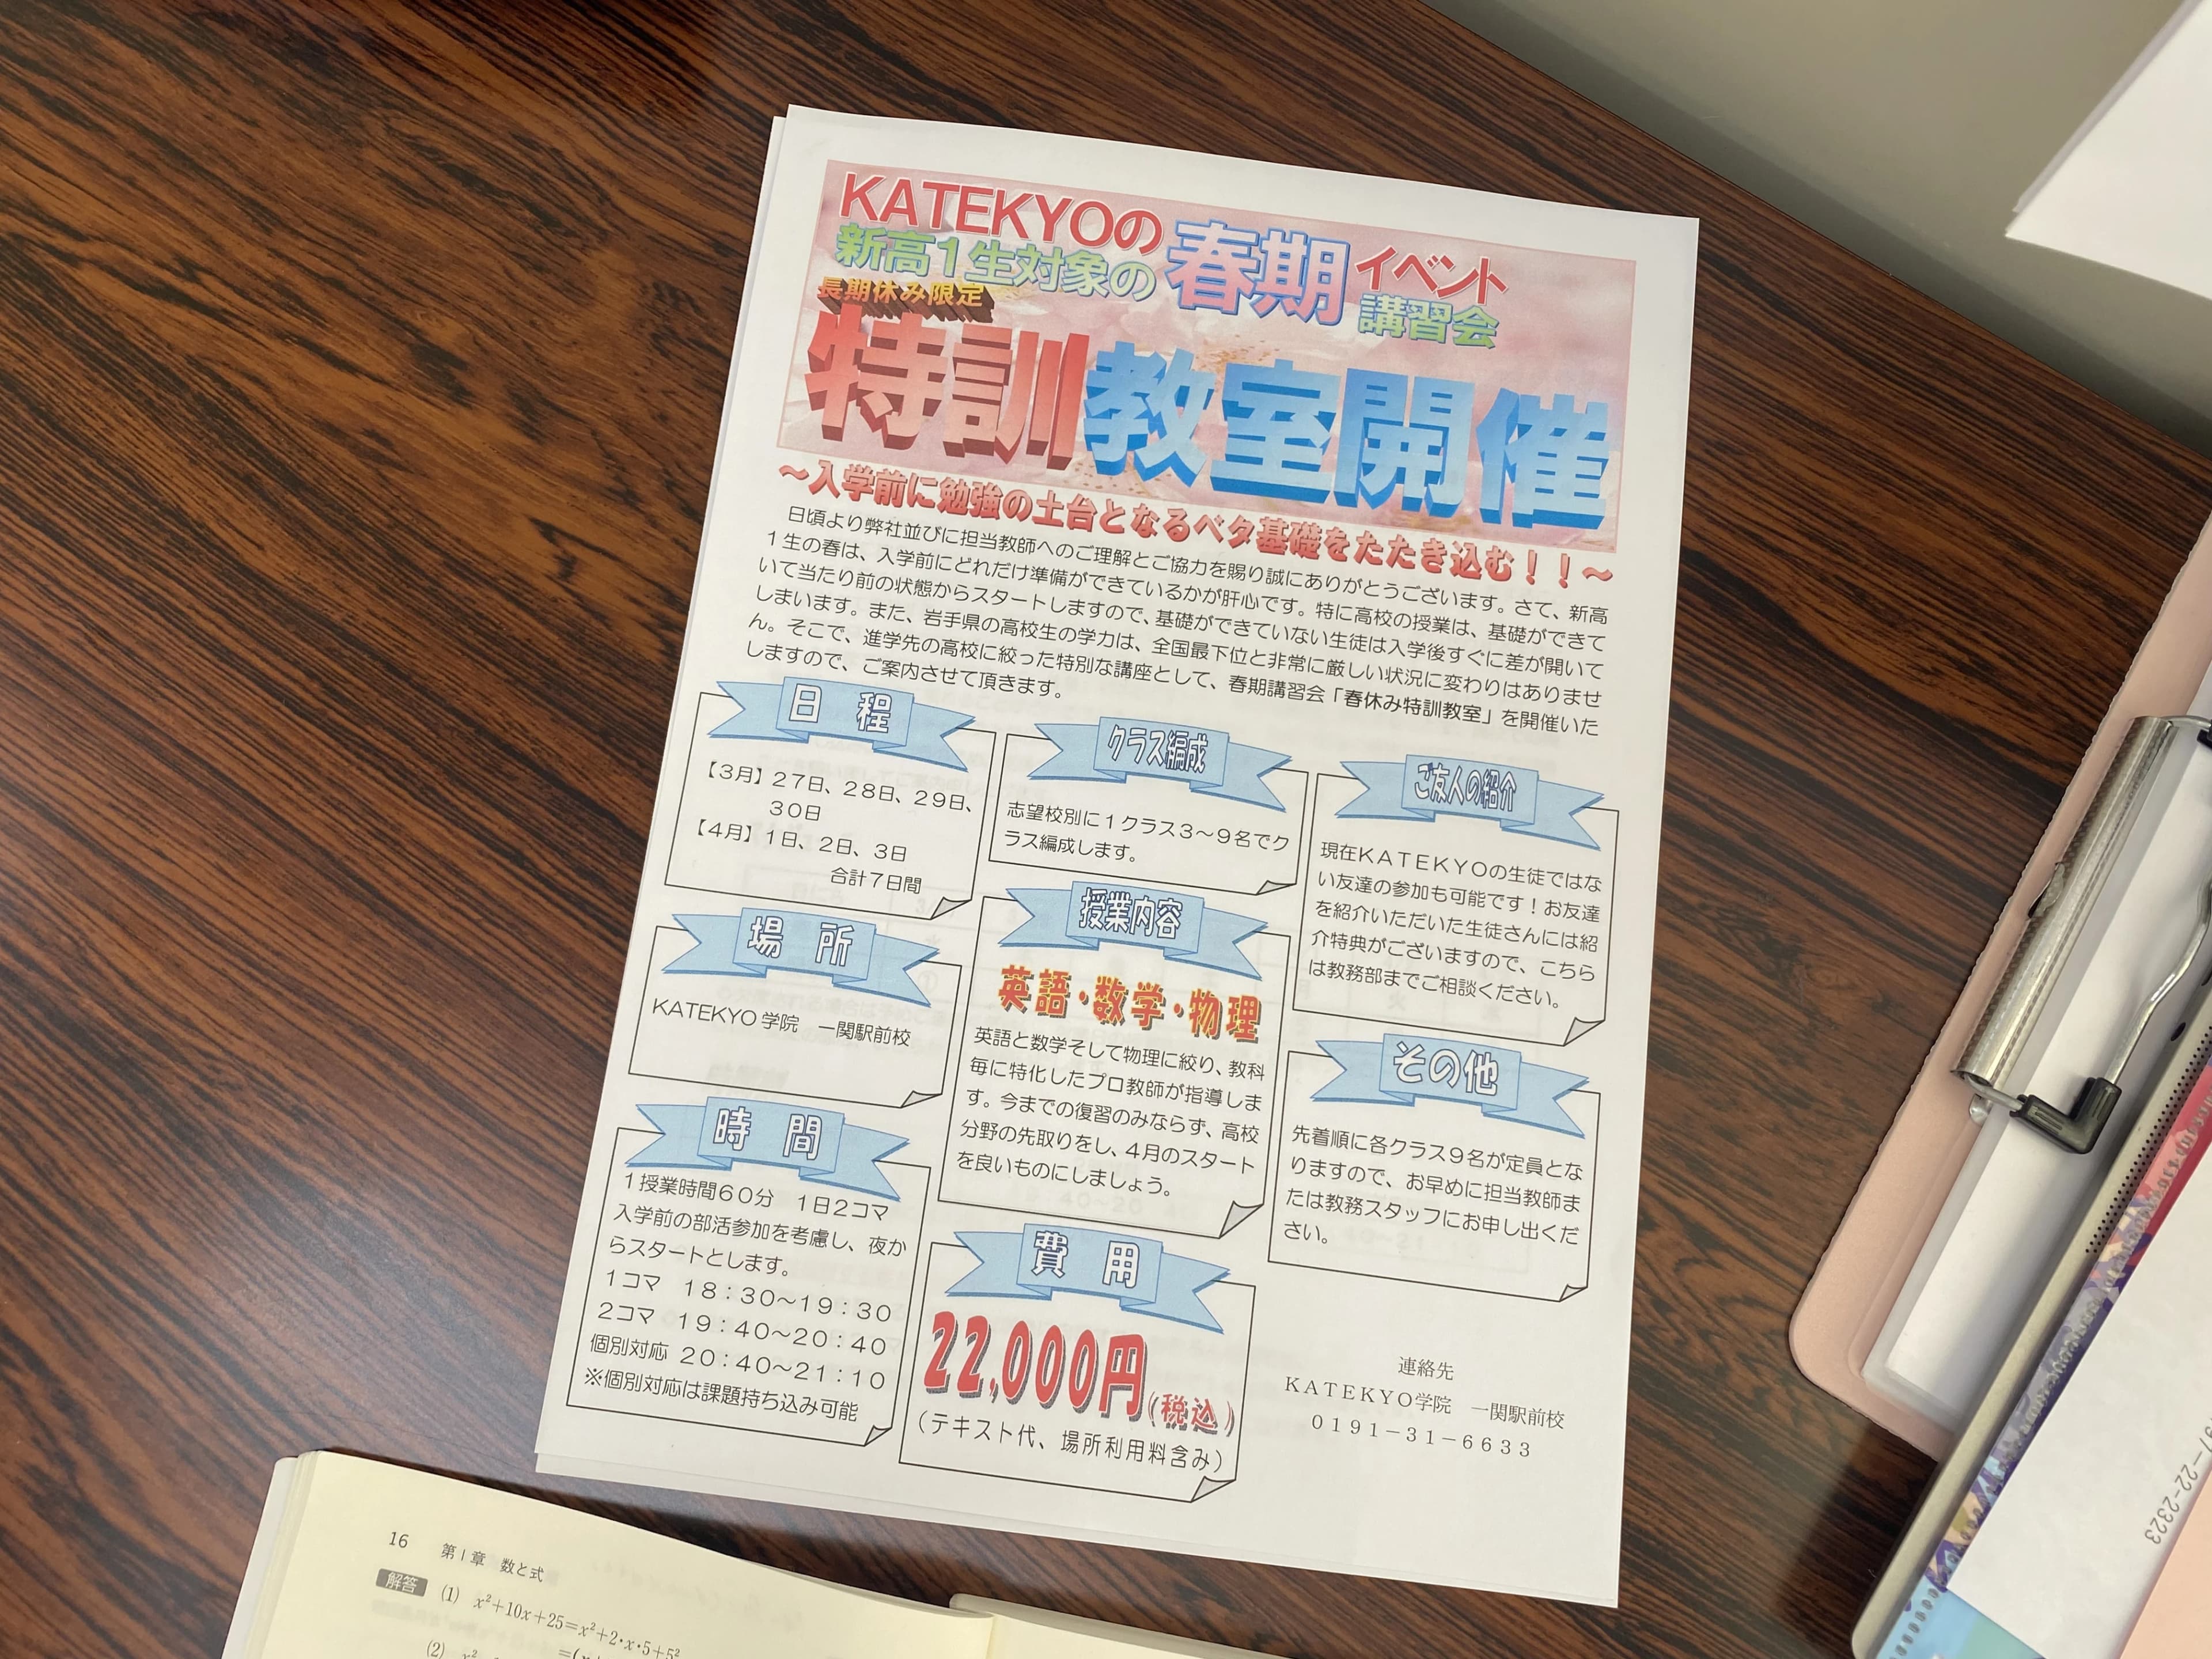 KATEKYOの
新高1生対象の
春期
イベント
講習会
長期休み限定
特訓教室開催
～入学前に勉強の土台となるベタ基礎をたたき込む！！～
日頃より弊社並びに担当教師へのご理解とご協力を賜り誠にありがとうございます。さて、新高
1生の春は、入学前にどれだけ準備ができているかが肝心です。特に高校の授業は、基礎ができて
いて当たり前の状態からスタートしますので、基礎ができていない生徒は入学後すぐに差が開いて
しまいます。また、岩手県の高校生の学力は、全国最下位と非常に厳しい状況に変わりはありませ
ん。そこで、進学先の高校に絞った特別な講座として、春期講習会「春休み特訓教室」を開催いた
しますので、ご案内させて頂きます。
日　程
【3月】27日、28日、29日、
30日
【4月】1日、2日、3日
合計7日間
場　所
KATEKYO学院　一関駅前校
時　間
1授業時間60分　1日2コマ
入学前の部活参加を考慮し、夜か
らスタートとします。
1コマ　18：30～19：30
2コマ　19：40～20：40
個別対応 20：40～21：10
※個別対応は課題持ち込み可能
クラス編成
志望校別に1クラス3～9名でク
ラス編成します。
授業内容
英語・数学・物理
英語と数学そして物理に絞り、教科
毎に特化したプロ教師が指導しま
す。今までの復習のみならず、高校
分野の先取りをし、4月のスタート
を良いものにしましょう。
費　用
22,000円(税込)
（テキスト代、場所利用料含み）
ご友人の紹介
現在KATEKYOの生徒ではな
い友達の参加も可能です！お友達
を紹介いただいた生徒さんには紹
介特典がございますので、こちら
は教務部までご相談ください。
その他
先着順に各クラス9名が定員とな
りますので、お早めに担当教師ま
たは教務スタッフにお申し出くだ
さい。
連絡先
KATEKYO学院　一関駅前校
0191－31－6633
16　第1章 数と式
解答 (1) x²+10x+25=x²+2・x・5+5²
(2) x²
-22-2323